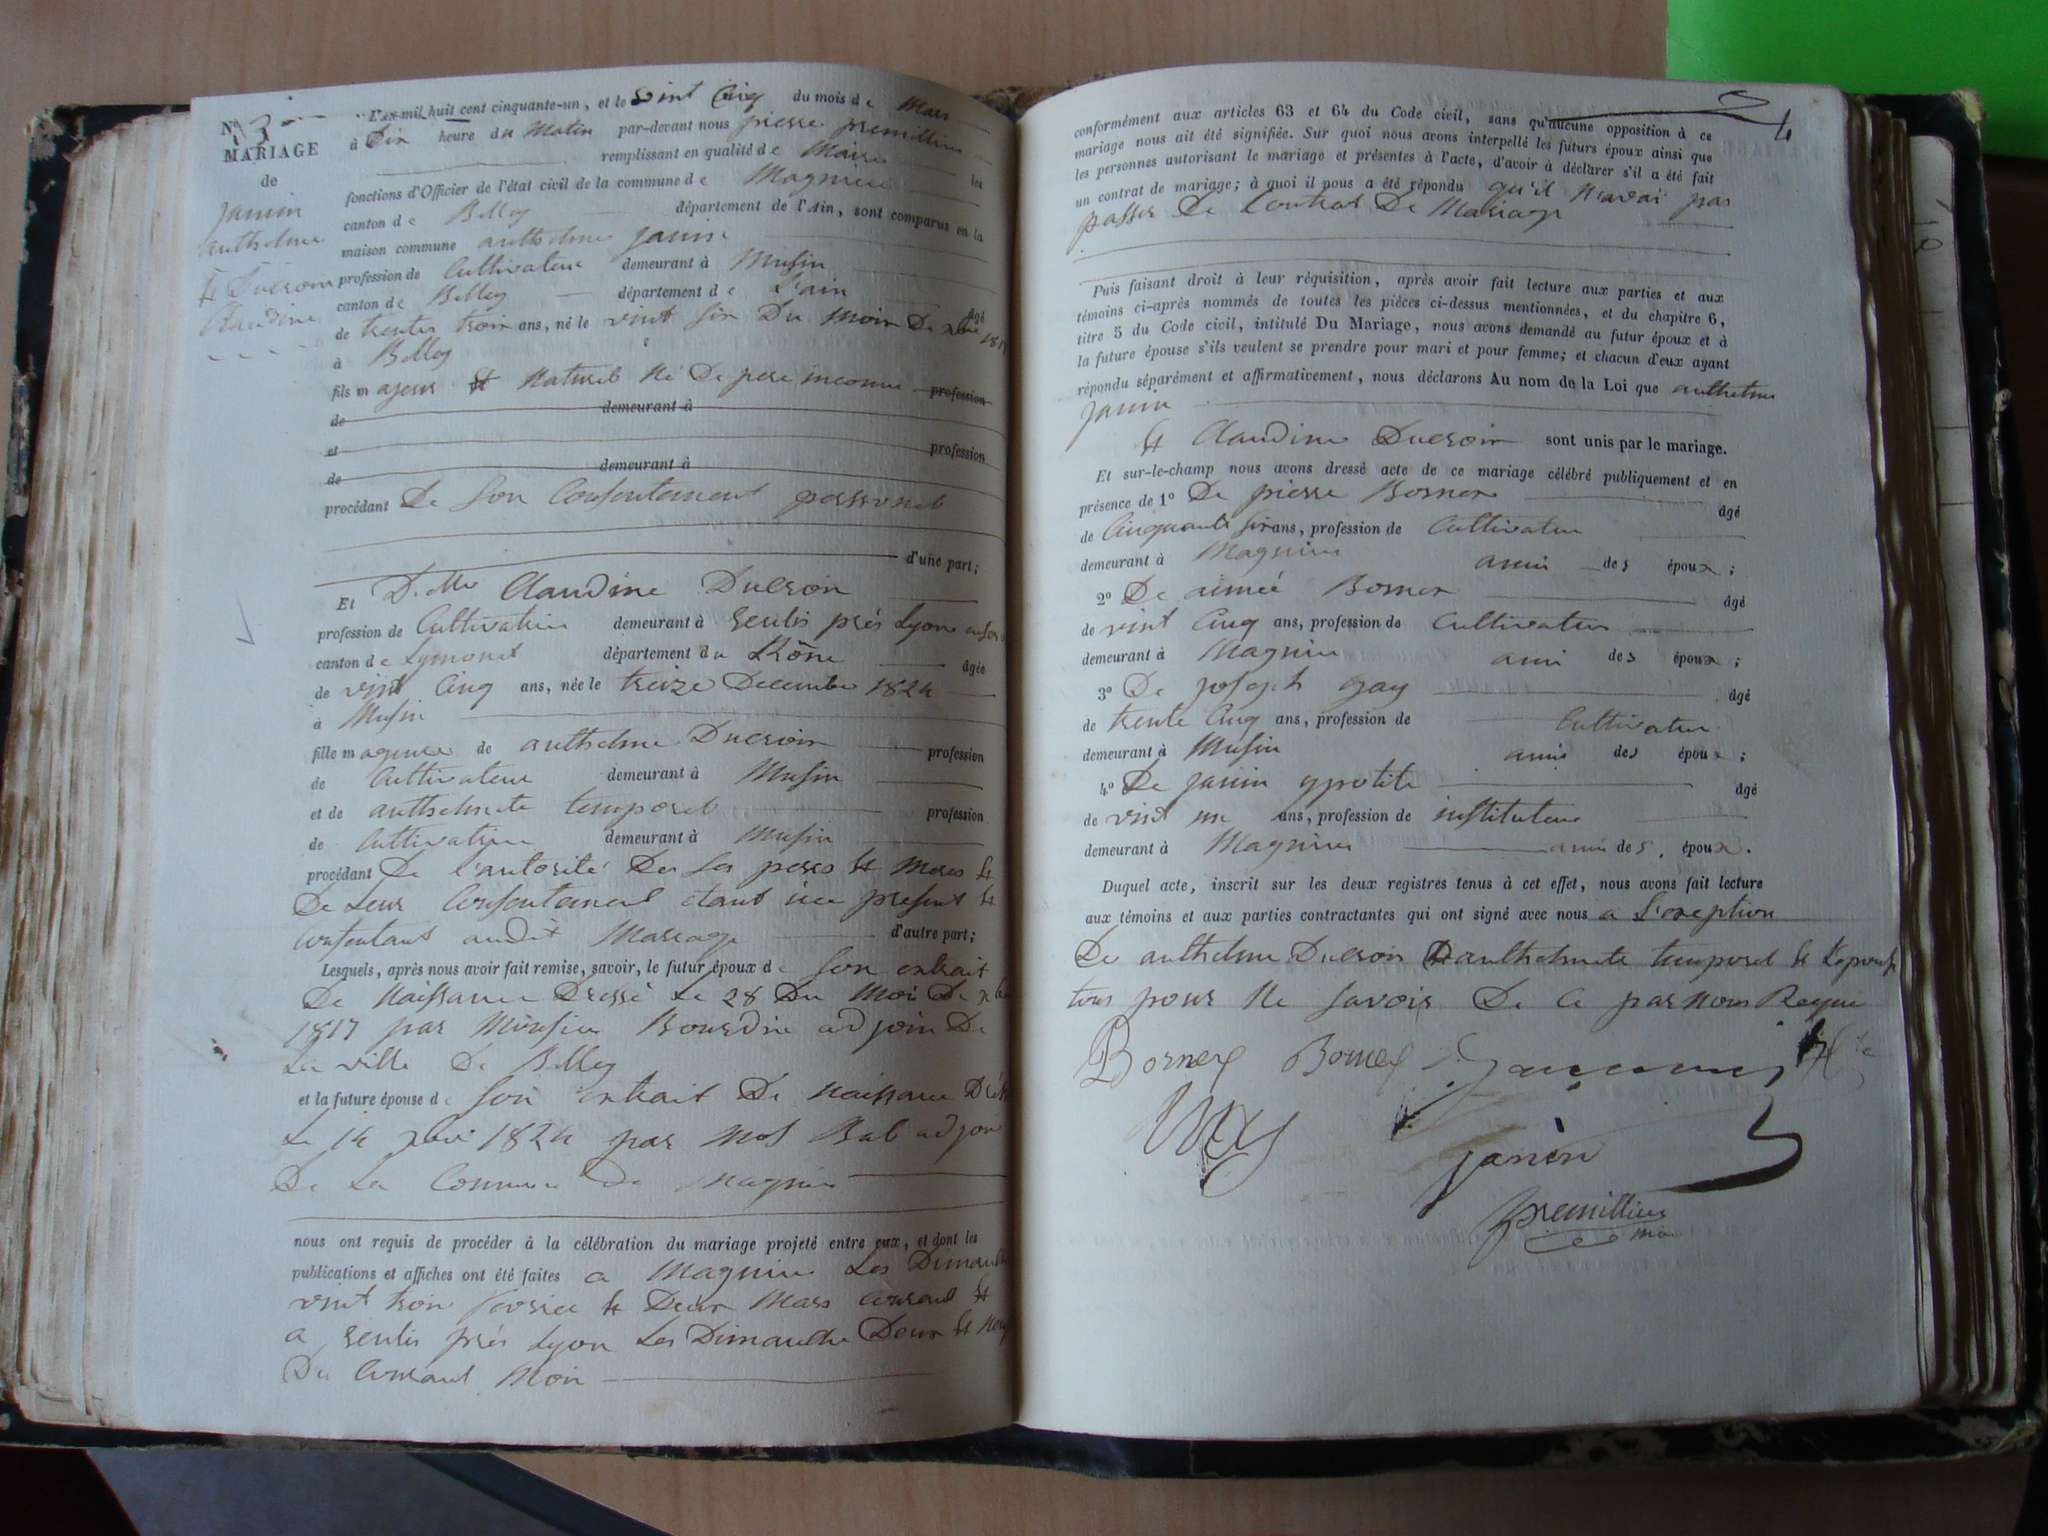 N° 3
MARIAGE
de
janin
anthelme
et Ducroin
Claudine
L'AN mil huit cent cinquante-un, et le vint Cinq du mois de Mars
à Dix heure du Matin par-devant nous pierre premillieu
remplissant en qualité de Maire les
fonctions d'Officier de l'état civil de la commune de Magnieu
canton de Belley département de l'Ain, sont comparus en la
maison commune anthelme janin
profession de Cultivateur demeurant à Musin
canton de Belley département de L'ain âgé
de trentes trois ans, né le vint six Du mois De 1817
à Belley
fils majeur et Naturel Né De pere inconnu profession
de demeurant à
et profession
de demeurant à
procédant De son Consentement personnel
d'une part;
Et D.elle Claudine Ducroin
profession de Cultivatrice demeurant à près Lyon
canton de Lymonet département du Rhône âgée
de vint Cinq ans, née le treize Decembre 1824
à Musin
fille majeure de anthelme Ducroin profession
de Cultivateur demeurant à Musin
et de anthelmete temporel profession
de Cultivatrice demeurant à Musin
procédant De l'autorité De ses peres et Meres et
De Leur Consentement etant ici present et
consentant audit Mariage d'autre part;
Lesquels, après nous avoir fait remise, savoir, le futur époux de son extrait
De Naissance Dressé Le 28 Du Moi De
1817 par Monsieur Bourdin adjoin De
La ville De Belley
et la future épouse de son extrait De Naissance
Le 14 1824 par Bal adjoin
De La Commune De Magnieu
nous ont requis de procéder à la célébration du mariage projeté entre eux, et dont les
publications et affiches ont été faites a Magnieu Les Dimanche
vint trois fevrier et Deux Mars courant et
a près Lyon Les Dimanche Deux et Neuf
Du Courant Mois
conformément aux articles 63 et 64 du Code civil, sans qu'aucune opposition à ce
mariage nous ait été signifiée. Sur quoi nous avons interpellé les futurs époux ainsi que
les personnes autorisant le mariage et présentes à l'acte, d'avoir à déclarer s'il a été fait
un contrat de mariage; à quoi il nous a été répondu qu'il N'avai pas
passer De Contrat De Mariage
Puis faisant droit à leur réquisition, après avoir fait lecture aux parties et aux
témoins ci-après nommés de toutes les pièces ci-dessus mentionnées, et du chapitre 6,
titre 5 du Code civil, intitulé Du Mariage, nous avons demandé au futur époux et à
la future épouse s'ils veulent se prendre pour mari et pour femme; et chacun d'eux ayant
répondu séparément et affirmativement, nous déclarons Au nom de la Loi que anthelme
janin
et Claudine Ducroin sont unis par le mariage.
Et sur-le-champ nous avons dressé acte de ce mariage célébré publiquement et en
présence de 1° De pierre Borner âgé
de Cinquante six ans, profession de Cultivateur
demeurant à Magnieu ami des époux;
2° De aimée Borner âgé
de vint Cinq ans, profession de Cultivateur
demeurant à Magnieu ami des époux;
3° De joseph gay âgé
de trente Cinq ans, profession de Cultivateur
demeurant à Musin ami des époux;
4° De janin âgé
de vint un ans, profession de instituteur
demeurant à Magnieu ami des époux.
Duquel acte, inscrit sur les deux registres tenus à cet effet, nous avons fait lecture
aux témoins et aux parties contractantes qui ont signé avec nous a L'exeption
De anthelme Ducroin anthelmete temporel et L'epouse
tous pour Ne savoir De Ce par Nous Requi
Borner Borner
janin
premillieu